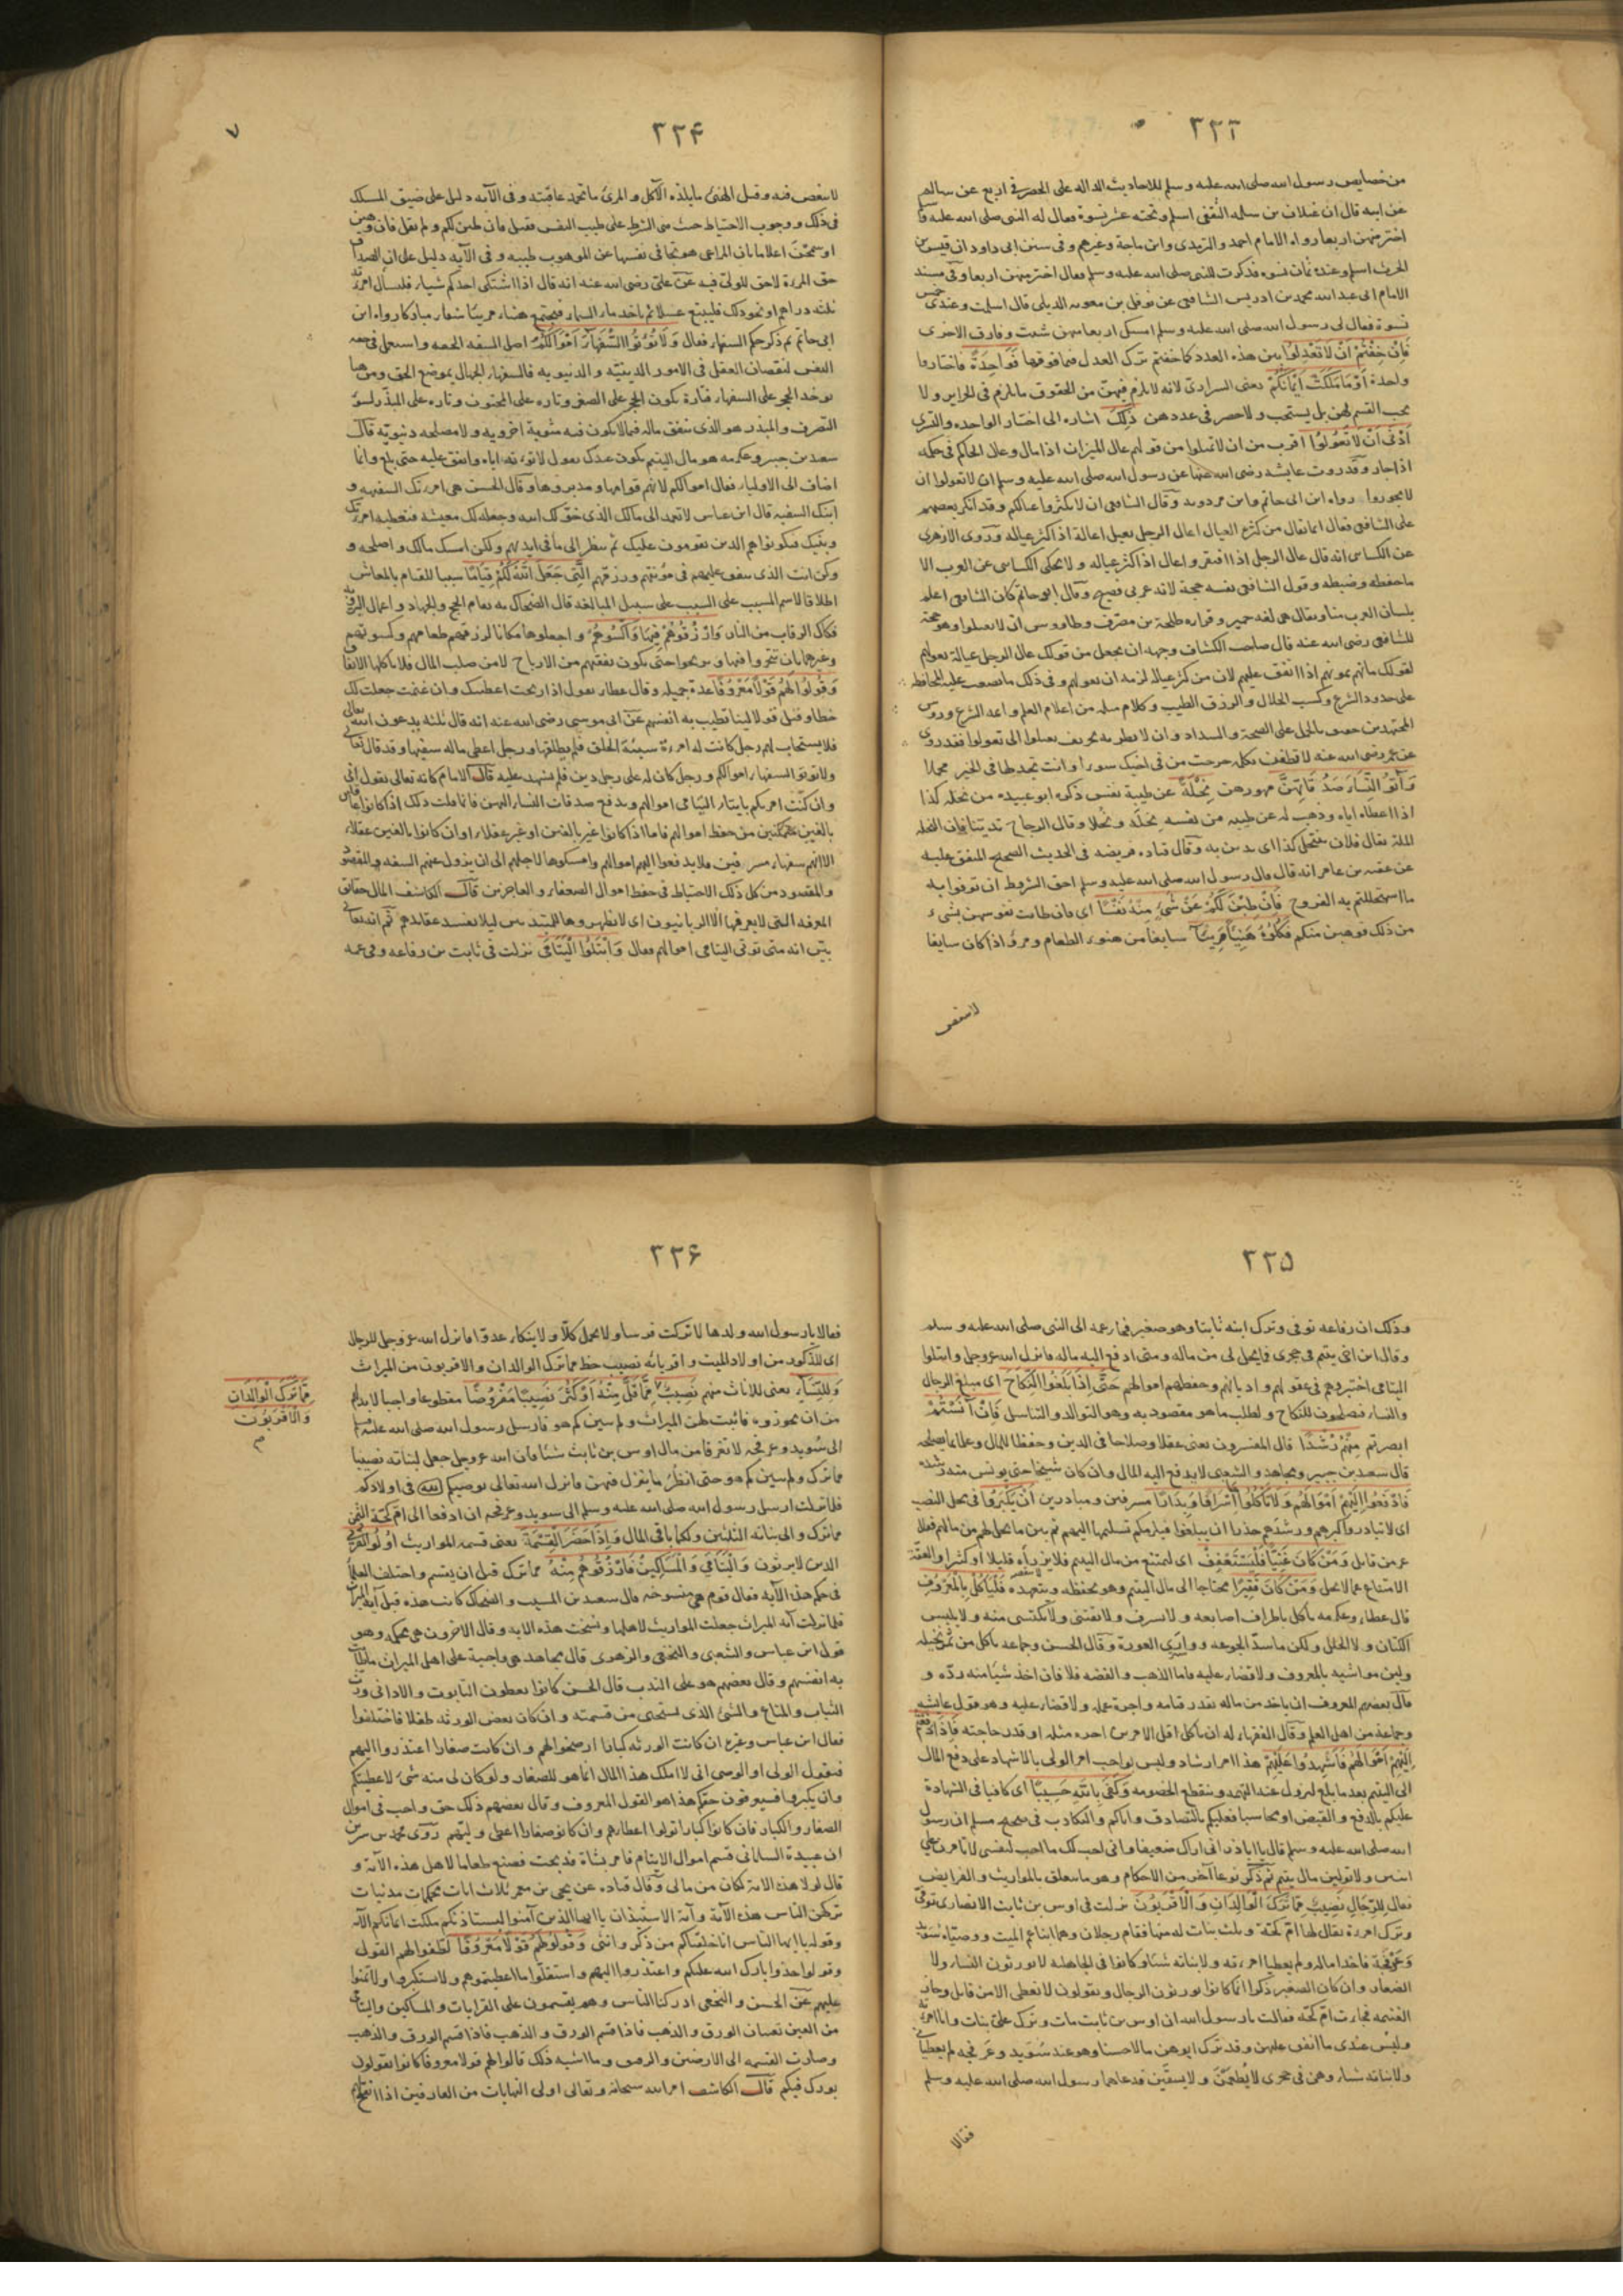 ٣٢٣
من خصايص رسول الله صلى الله عليه وسلم للاحاديث الداله على الحصر فى اربع عن سالم
عن ابيه قال ان غيلان بن سلمه الثقفى اسلم وتحته عشر نسوة فقال له النبى صلى الله عليه
اختر منهن اربعا رواه الامام احمد والترمذى وابن ماجة وغيرهم وفى سنن ابى داود ان قيس بن
الحرث اسلم وعنده ثمان نسوه فذكرت للنبى صلى الله عليه وسلم فقال اختر منهن اربعا وفى مسند
الامام ابى عبد الله محمد بن ادريس الشافعى عن نوفل بن معويه الديلى قال اسلمت وعندى خمس
نسوة فقال لى رسول الله صلى الله عليه وسلم امسك اربعا منهن شئت وفارق الاخرى
فَاِنْ خِفْتُمْ اَنْ لَا تَعْدِلُوا بين هذه العدد كما خفتم ترك العدل فيما فوقها فَوَاحِدَةً فاختاروا
واحدة اَوْ مَا مَلَكَتْ اَيْمَانُكُمْ يعنى السرارى لانه لا يلزم فيهن من الحقوق ما يلزم فى الحراير ولا
يجب القسم لهن بل يستحب ولا حصر فى عددهن ذٰلِكَ اشاره الى اختيار الواحده والتسرى
اَدْنٰى اَنْ لَا تَعُولُوا اقرب من ان لا تميلوا من قولهم عال الميزان اذا مال وعال الحاكم فى حكمه
اذا جار وقد روت عايشه رضى الله عنها عن رسول الله صلى الله عليه وسلم ان لا تعولوا ان
لا تجوروا رواه ابن ابى حاتم وابن مردويه وقال الشافعى ان لا يكثروا عيالكم وقد انكر بعضهم
على الشافعى فقال انما يقال من كثرة العيال اعال الرجل يعيل اعالة اذا كثر عياله وروى الازهرى
عن الكسائى انه قال عال الرجل اذا افتقر واعال اذا كثر عياله ولا يحكى الكسائى عن العرب الا
ما حفظه وضبطه وقول الشافعى نفسه حجة لانه عربى فصيح وقال ابو حاتم كان الشافعى اعلم
بلسان العرب منا ويقال هى لغه حمير وقراءه طلحة بن مصرف وطاووس ان لا تعيلوا وهو حجة
للشافعى رضى الله عنه قال صاحب الكشاف وجهه ان يجعل من قولك عال الرجل عياله يعولهم
لقولك مانهم يمونهم اذا انفق عليهم لان من كثر عياله لزمه ان يعولهم وفى ذلك ما يصعب عليه المحافظه
على حدود الشرع وكسب الحلال والرزق الطيب وكلام مثله من اعلام العلم وائمة الشرع وروس
المجتهدين حقيق بالحمل على الصحة والسداد وان لا يظن به تحريف تعيلوا الى تعولوا فقد روى
عن عمر رضى الله عنه لا تظنن بكلمة خرجت من فى اخيك سوءا وانت تجد لها فى الخير محملا
وَاٰتُوا النِّسَاءَ صَدُقَاتِهِنَّ مهورهن نِحْلَةً عن طيبة نفس ذكره ابو عبيده من نحله كذا
اذا اعطاه اياه ووهب له عن طيبه من نفسه نحلَة ونُحلا وقال الزجاج تدينا فان النحله
الملة يقال فلان ينتحل كذا اى يدين به وقال قتاده فريضه فى الحديث الصحيح المتفق عليه
عن عقبه بن عامر انه قال قال رسول الله صلى الله عليه وسلم احق الشروط ان توفوا به
ما استحللتم به الفروج فَاِنْ طِبْنَ لَكُمْ عَنْ شَىْءٍ مِنْهُ نَفْسًا اى فان طابت نفوسهن بشىء
من ذلك فوهبن منكم فَكُلُوهُ هَنِيئًا مَرِيئًا سايغا من هنوء الطعام ومرؤ اذا كان سايغا
لا تنغيص
٧
٣٢۴
لا تنغيص فيه وقيل الهنئ ما يلذه الآكل والمرئ ما تحمد عاقبته وفى الآيه دليل على ضيق المسلك
فى ذلك ووجوب الاحتياط حيث بنى الشرط على طيب النفس فقيل فان طبن لكم ولم يقل فان وهبن
او سمحن اعلاما بان المراعى هو تجافى نفسها عن الموهوب طيبه وفى الآيه دليل على ان الصداق
حق المرءة لا حق للولى فيه عن على رضى الله عنه انه قال اذا اشتكى احدكم شيئا فليسأل امرءته
ثلثه دراهم او نحو ذلك فليبتع عسلا ثم ياخذ ماء السماء فيجتمع هنيئا مريئا شفاء مباركا رواه ابن
ابى حاتم ثم ذكر حكم السفهاء فقال وَلَا تُؤْتُوا السُّفَهَاءَ اَمْوَالَكُمُ اصل السفه الخفه واستعمل فى خفه
النفس لنقصان العقل فى الامور الدينيّه والدنيويه فالسفهاء الجهال بموضع الحق ومن هنا
يوخذ الحجر على السفهاء فتارة يكون الحجر على الصغر وتاره على المجنون وتاره على المبذر لسوء
التصرف والمبذر هو الذى ينفق ماله فيما لا يكون فيه مثوبة اخرويه ولا مصلحه دنيويّه قال
سعد بن جبير وعكرمه هو مال اليتيم يكون عندك يقول لا توته اياه وانفق عليه حتى بلغ وانما
اضاف الى الاولياء فقال اموالكم لانهم قوامها ومدبروها وقال الحسن هى امرءتك السفيهه و
ابنك السفيه قال ابن عباس لا تعمد الى مالك الذى خوّلك الله وجعله لك معيشه فتعطيه امرءتك
وبنيك فيكونوا هم الذين يقومون عليك ثم تنظر الى ما فى ايديهم ولكن امسك مالك واصلحه و
وكن انت الذى تنفق عليهم فى مؤنتهم ورزقهم الَّتِى جَعَلَ اللهُ لَكُمْ قِيَامًا سببا للقيام بالمعاش
اطلاقا لاسم المسبب على السبب على سبيل المبالغه قال الضحاك به يقام الحج والجهاد واعمال البر وبه
فكاك الرقاب من النار وَارْزُقُوهُمْ فِيهَا وَاكْسُوهُمْ واجعلوها مكانا لرزقهم طعامهم وكسوتهم
وغيرهما بان تتجروا فيها وتربحوا حتى يكون نفقتهم من الارباح لا من صلب المال فلا ياكلها الانفاق
وَقُولُوا لَهُمْ قَوْلًا مَعْرُوفًا عدة جميله وقال عطاء يقول اذا ربحت اعطيتك وان غنمت جعلت لك
حظا وقيل قولا لينا تطيب به انفسهم عن ابى موسى رضى الله عنه انه قال ثلثه يدعون الله تعالى
فلا يستجاب لهم رجل كانت له امرءة سيئة الخلق فلم يطلقها ورجل اعطى ماله سفيها وقد قال تعالى
ولا توتوا السفهاء اموالكم ورجل كان له على رجل دين فلم يشهد عليه قال الامام كانه تعالى يقول انى
وان كنت امرتكم بايتاء اليتامى اموالهم وبدفع صدقات النساء اليهن فانما قلت ذلك اذا كانوا عاقلين
بالغين متمكنين من حفظ اموالهم فاما اذا كانوا غير بالغين او غير عقلاء او ان كانوا بالغين عقلاء
الا انهم سفهاء مسرفين فلا يدفعوا اليهم اموالهم وامسكوها لاجلهم الى ان يزول عنهم السفه
والمقصود من كل ذلك الاحتياط فى حفظ اموال الضعفاء والعاجزين قال الكاشف المال حقائق
المعرفه التى لا يعرفها الا الربانيون اى لا تظهروها للمبتدئين ليلا تفسد عقايدهم ثم انه تعالى
بيّن انه متى توتى اليتامى اموالهم فقال وَابْتَلُوا الْيَتَامٰى نزلت فى ثابت بن رفاعه وفى عمه
٣٢۵
وذلك ان رفاعه توفى وترك ابنه ثابتا وهو صغير فجاء عمه الى النبى صلى الله عليه وسلم
وقال ابن اخى يتيم فى حجرى فما يحل لى من ماله ومتى ادفع اليه ماله فانزل الله عز وجل وابتلوا
اليتامى اختبروهم فى عقولهم واديانهم وحفظهم اموالهم حَتّٰى اِذَا بَلَغُوا النِّكَاحَ اى مبلغ الرجال
والنساء فيصلحون للنكاح ولطلب ما هو مقصود به وهو التوالد والتناسل فَاِنْ اٰنَسْتُمْ
ابصرتم مِنْهُمْ رُشْدًا قال المفسرون يعنى عقلا وصلاحا فى الدين وحفظا للمال وعلما بما يصلحه
قال سعيد بن جبير ومجاهد والشعبى لا يدفع اليه المال وان كان شيخا حتى يونس منه رشده
فَادْفَعُوا اِلَيْهِمْ اَمْوَالَهُمْ وَلَا تَأْكُلُوهَا اِسْرَافًا وَبِدَارًا مسرفين ومبادرين اَنْ يَكْبَرُوا فى محل النصب
اى لا تبادروا كبرهم ورشدهم حذرا ان يبلغوا فيلزمكم تسليمها اليهم ثم بين ما يحل لهم من مالهم فقال
عز من قايل وَمَنْ كَانَ غَنِيًّا فَلْيَسْتَعْفِفْ اى ليمتنع من مال اليتيم فلا يرزأه قليلا او كثيرا والعفّة
الامتناع عما لا يحل وَمَنْ كَانَ فَقِيرًا محتاجا الى مال اليتيم وهو يحفظه ويتعهده فَلْيَأْكُلْ بِالْمَعْرُوفِ
قال عطاء وعكرمه ياكل باطراف اصابعه ولا يسرف ولا يقتنى ولا يكتسى منه ولا يلبس
الكتان ولا الحلل ولكن ما سدّ الجوعه ووارى العورة وقال الحسن وجماعه ياكل من ثمر نخيله
ولبن مواشيه بالمعروف ولا قضاء عليه فاما الذهب والفضه فلا فان اخذ شيئا منه ردّه و
قال بعضهم المعروف ان ياخذ من ماله بقدر قيامه واجرة عمله ولا قضاء عليه وهو قول عايشه
وجماعة من اهل العلم وقال الفقهاء له ان ياكل اقل الامرين اجره مثله او قدر حاجته فَاِذَا دَفَعْتُمْ
اِلَيْهِمْ اَمْوَالَهُمْ فَاَشْهِدُوا عَلَيْهِمْ هذا امر ارشاد وليس بواجب امر الولى بالاشهاد على دفع المال
الى اليتيم بعد ما بلغ لتزول عنه التهمه وينقطع الخصومه وَكَفٰى بِاللهِ حَسِيبًا اى كافيا فى الشهادة
عليكم بالدفع والقبض او محاسبا فعليكم بالتصادق واياكم والتكاذب فى صحيح مسلم ان رسول
الله صلى الله عليه وسلم قال يا ابا ذر انى اراك ضعيفا وانى احب لك ما احب لنفسى لا تامرن على
اثنين ولا تولين مال يتيم ثم ذكر نوعا آخر من الاحكام وهو ما يتعلق بالمواريث والفرايض
فقال لِلرِّجَالِ نَصِيبٌ مِمَّا تَرَكَ الْوَالِدَانِ وَالْاَقْرَبُونَ نزلت فى اوس بن ثابت الانصارى توفى
وترك امرءة يقال لها ام كحّة وثلث بنات له منها فقام رجلان وهما ابنا عم الميت ووصيّاه سُوَيد
وَعَرْفجَة فاخذا ماله ولم يعطيا امرءته ولا بناته شيئا وكانوا فى الجاهليه لا يورثون النساء ولا
الصغار وان كان الصغير ذكرا انما كانوا يورثون الرجال ويقولون لا نعطى الا من قاتل وحاز
الغنيمه فجاءت ام كحّه فقالت يا رسول الله ان اوس بن ثابت مات وترك علىّ بنات وانا امرءته
وليس عندى ما انفق عليهن وقد ترك ابوهن مالا حسنا وهو عند سُوَيد وعَرفجه لم يعطيانى
ولا بناته شيئا وهن فى حجرى لا يُطعَمْنَ ولا يسقَين فدعاهما رسول الله صلى الله عليه وسلم
فقالا
٣٢۶
فقالا يا رسول الله ولدها لا تركب فرسا ولا يحمل كلّا ولا ينكاء عدوا فانزل الله عز وجل للرجال
اى للذكور من اولاد الميت واقربائه نصيب حظ مما ترك الوالدان والاقربون من الميراث
وَلِلنِّسَاءِ يعنى للاناث منهم نَصِيبٌ مِمَّا قَلَّ مِنْهُ اَوْ كَثُرَ نَصِيبًا مَفْرُوضًا مقطوعا واجبا لا بد لهم
من ان يحوزوه فاثبت لهن الميراث ولم يبين كم هو فارسل رسول الله صلى الله عليه وسلم
الى سُويد وعرفجه لا تفرقا من مال اوس بن ثابت شيئا فان الله عز وجل جعل لبناته نصيبا
مما ترك ولم يبين كم هو حتى انظُرَ ما ينزل فيهن فانزل الله تعالى يوصيكم الله فى اولادكم
فلما نزلت ارسل رسول الله صلى الله عليه وسلم الى سويد وعرفجه ان ادفعا الى ام كحّة الثمن
مما ترك والى بناته الثلثين ولكما باقى المال وَاِذَا حَضَرَ الْقِسْمَةَ يعنى قسمه المواريث اُولُوا الْقُرْبٰى
الذين لا يرثون وَالْيَتَامٰى وَالْمَسَاكِينُ فَارْزُقُوهُمْ مِنْهُ مما ترك قبل ان يقسم واختلف العلماء
فى حكم هذه الآيه فقال قوم هى منسوخه قال سعيد بن المسيب والضحاك كانت هذه قبل آية الميراث
فلما نزلت آيه الميراث جعلت المواريث لاهلها ونسخت هذه الايه وقال الاخرون هى محكمه وهو
قول ابن عباس والشعبى والنخعى والزهرى قال مجاهد هى واجبة على اهل الميراث ما طابت
به انفسهم وقال بعضهم هو على الندب قال الحسن كانوا يعطون التابوت والاوانى ورث
الثياب والمتاع والشئ الذى يستحيى من قسمته وان كان بعض الورثه طفلا فاختلفوا
فقال ابن عباس وغيره ان كانت الورثه كبارا ارضخوا لهم وان كانت صغارا اعتذروا اليهم
فيقول الولى او الوصى انى لا املك هذا المال انما هو للصغار ولو كان لى منه شئ لاعطيتكم
وان يكبروا فسيوفون حقكم هذا هو القول المعروف وقال بعضهم ذلك حق واجب فى اموال
الصغار والكبار فان كانوا كبارا تولوا اعطاءهم وان كانو صغارا اعطى وليّهم روى محمد بن سيرين
ان عبيدة السلمانى قسم اموال الايتام فامر بشاة فذبحت فصنع طعاما لاهل هذه الآية و
قال لولا هذه الاية لكان من مالى وقال قتاده عن يحيى بن معمر ثلاث ايات محكمات مدنيات
تركهن الناس هذه الآية وآية الاستيذان يا ايها الذين آمنوا ليستاذنكم الذين ملكت ايمانكم الآيه
وقوله يا ايها الناس انا خلقناكم من ذكر وانثى وَقُولُوا لَهُمْ قَوْلًا مَعْرُوفًا لطّفوا لهم القول
وقولوا خذوا بارك الله عليكم واعتذروا اليهم واستقلّوا ما اعطيتموهم ولا تستكثروا ولا تمنوا
عليهم عن الحسن والنخعى ادركنا الناس وهم يقسمون على القرابات والمساكين واليتامى
من العين يعنيان الورق والذهب فاذا قسم الورق والذهب فاذا قسم الورق والذهب
وصارت القسمه الى الارضين والرقيق وما اشبه ذلك قالوا لهم قولا معروفا كانوا يقولون
بورك فيكم قال الكاشف امر الله سبحانه وتعالى اولى النهايات من العارفين اذا
مِمَّا تَرَكَ الْوَالِدَانِ
وَالْاَقْرَبُونَ
م